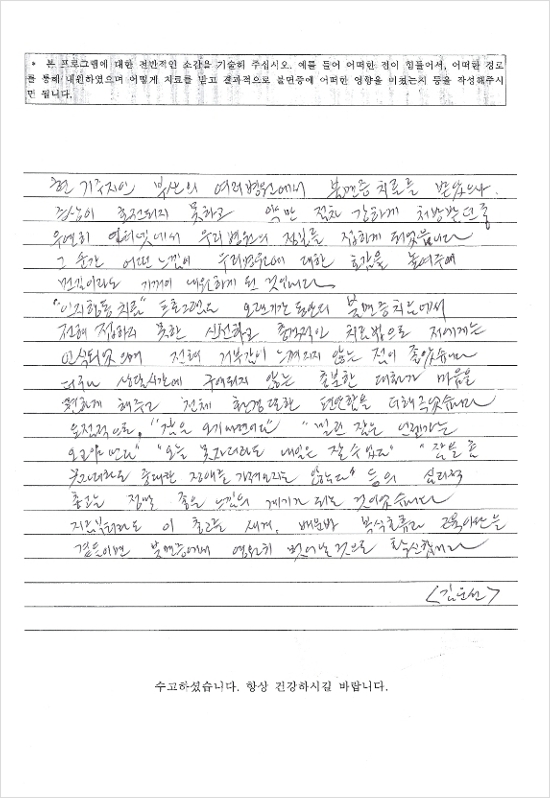 * 본 프로그램에 대한 전반적인 소감을 기술해 주십시오. 예를 들어 어떠한 점이 힘들어서, 어떠한 경로
를 통해 내원하였으며 어떻게 치료를 받고 결과적으로 불면증에 어떠한 영향을 미쳤는지 등을 작성해주시
면 됩니다.
현 거주지인 부산의 여러병원에서 불면증 치료를 받았으나
증상이 호전되지 못하고 약만 점차 강하게 처방받던중
우연히 인터넷에서 우리병원의 정보를 접하게 되었습니다
그 순간 어떤 느낌이 우리병원에 대한 호감을 높여주어
먼길이라도 기꺼이 내원하게 된 것입니다
"인지행동치료" 프로그램은 오랜기간 동안의 불면증치료에서
전혀 접하지 못한 신선하고 충격적인 치료법으로 저에게는
인식되었으며 전혀 거부감이 느껴지지 않는 점이 좋았습니다
더구나 상담시간에 구애되지 않는 충분한 대화가 마음을
편하게 해주고 전체 환경또한 편안함을 더해주었습니다
"잠은 오게 되어있다" "밀린 잠은 언젠가는
오고야 만다" "오늘 못자더라도 내일은 잘수있다" "잠을 좀
못자더라도 중대한 장애를 가져오지는 않는다" 등의 심리적
충고는 정말 좋은 느낌의 계기가 되는 것이었습니다
이 충고를 새겨, 배운바 복식호흡과 근육이완을
곁들이면 불면증에서 영원히 벗어날것으로 확신합니다
수고하셨습니다. 항상 건강하시길 바랍니다.